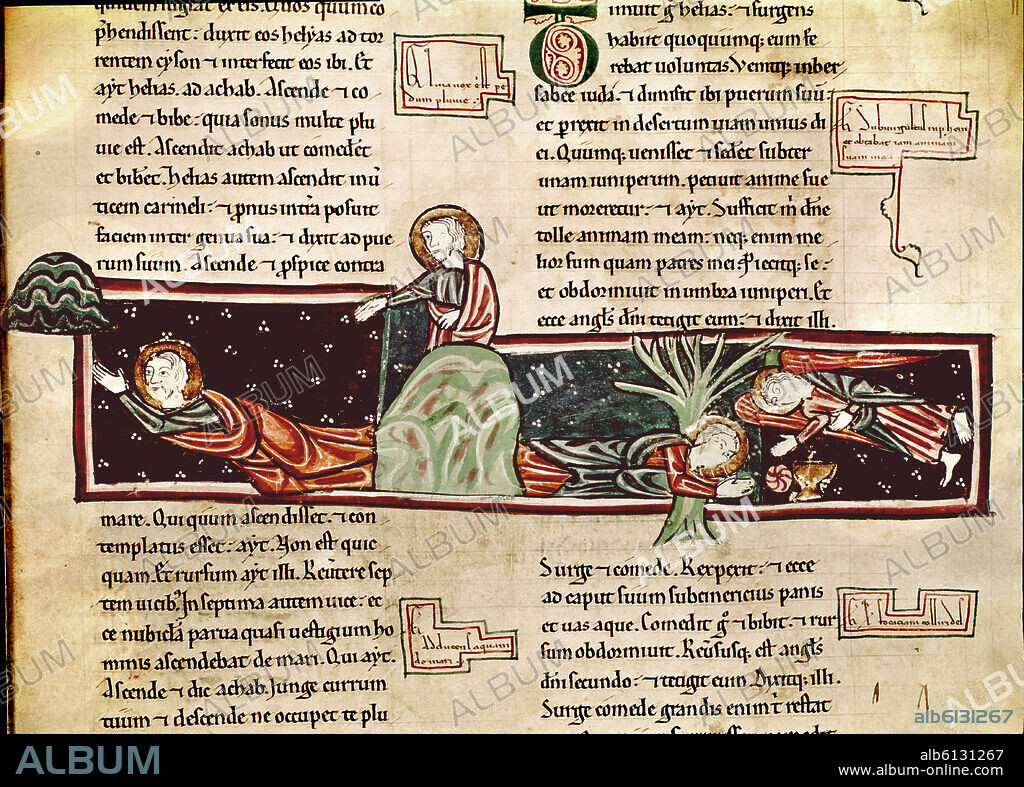 phendissent: duxit eos helyas ad tor
rentem cyson ⁊ interfecit eos ibi. Et
ayt helyas. ad achab. Ascende ⁊ co
mede ⁊ bibe: quia sonus multe plu
uie est. Ascendit achab ut comedet
et bibet. helias autem ascendit in u
ticem carmeli: ⁊ pnus in tra posuit
faciem inter genua sua: ⁊ dixit ad pue
rum suum. Ascende ⁊ pspice contra
mare. Qui quum ascendisset. ⁊ con
templatus esset: ayt. Non est quic
quam. Et rursum ayt illi. Reutere sep
tem uicib. In septima autem uice: ec
ce nubicla parua quasi uestigium ho
minis ascendebat de mari. Qui ayt.
Ascende ⁊ dic achab. Junge currum
tuum ⁊ descende ne occupet te plu
imuit g helias: ⁊ surgens
habiit quoquumq; eum fe
rebat uoluntas. Uenitq; in ber
sabee iuda: ⁊ dimisit ibi puerum suu:
et prexit in desertum uiam unius di
ei. Quumq; uenisset ⁊ sedet subter
unam iuniperum. petiuit anime sue
ut moreretur: ⁊ ayt. Sufficit m dne
tolle animam meam: neq; enim me
lior sum quam patres mei. Piecitq; se:
et obdormiuit in umbra iuniperi. Et
ecce angls dni tetigit eum: ⁊ dixit illi.
Surge ⁊ comede. Respexit: ⁊ ecce
ad caput suum subcinericius panis
et uas aque. Comedit g ⁊ bibit: ⁊ rur
sum obdormiuit. Reususq; est angls
dni secundo: ⁊ tetigit eum. Dixitq; illi.
Surge comede grandis enim t restat
Adducens aquam
de mari.
ALBUM
alb6131267
ALBUM
alb6131267
www.album-online.com